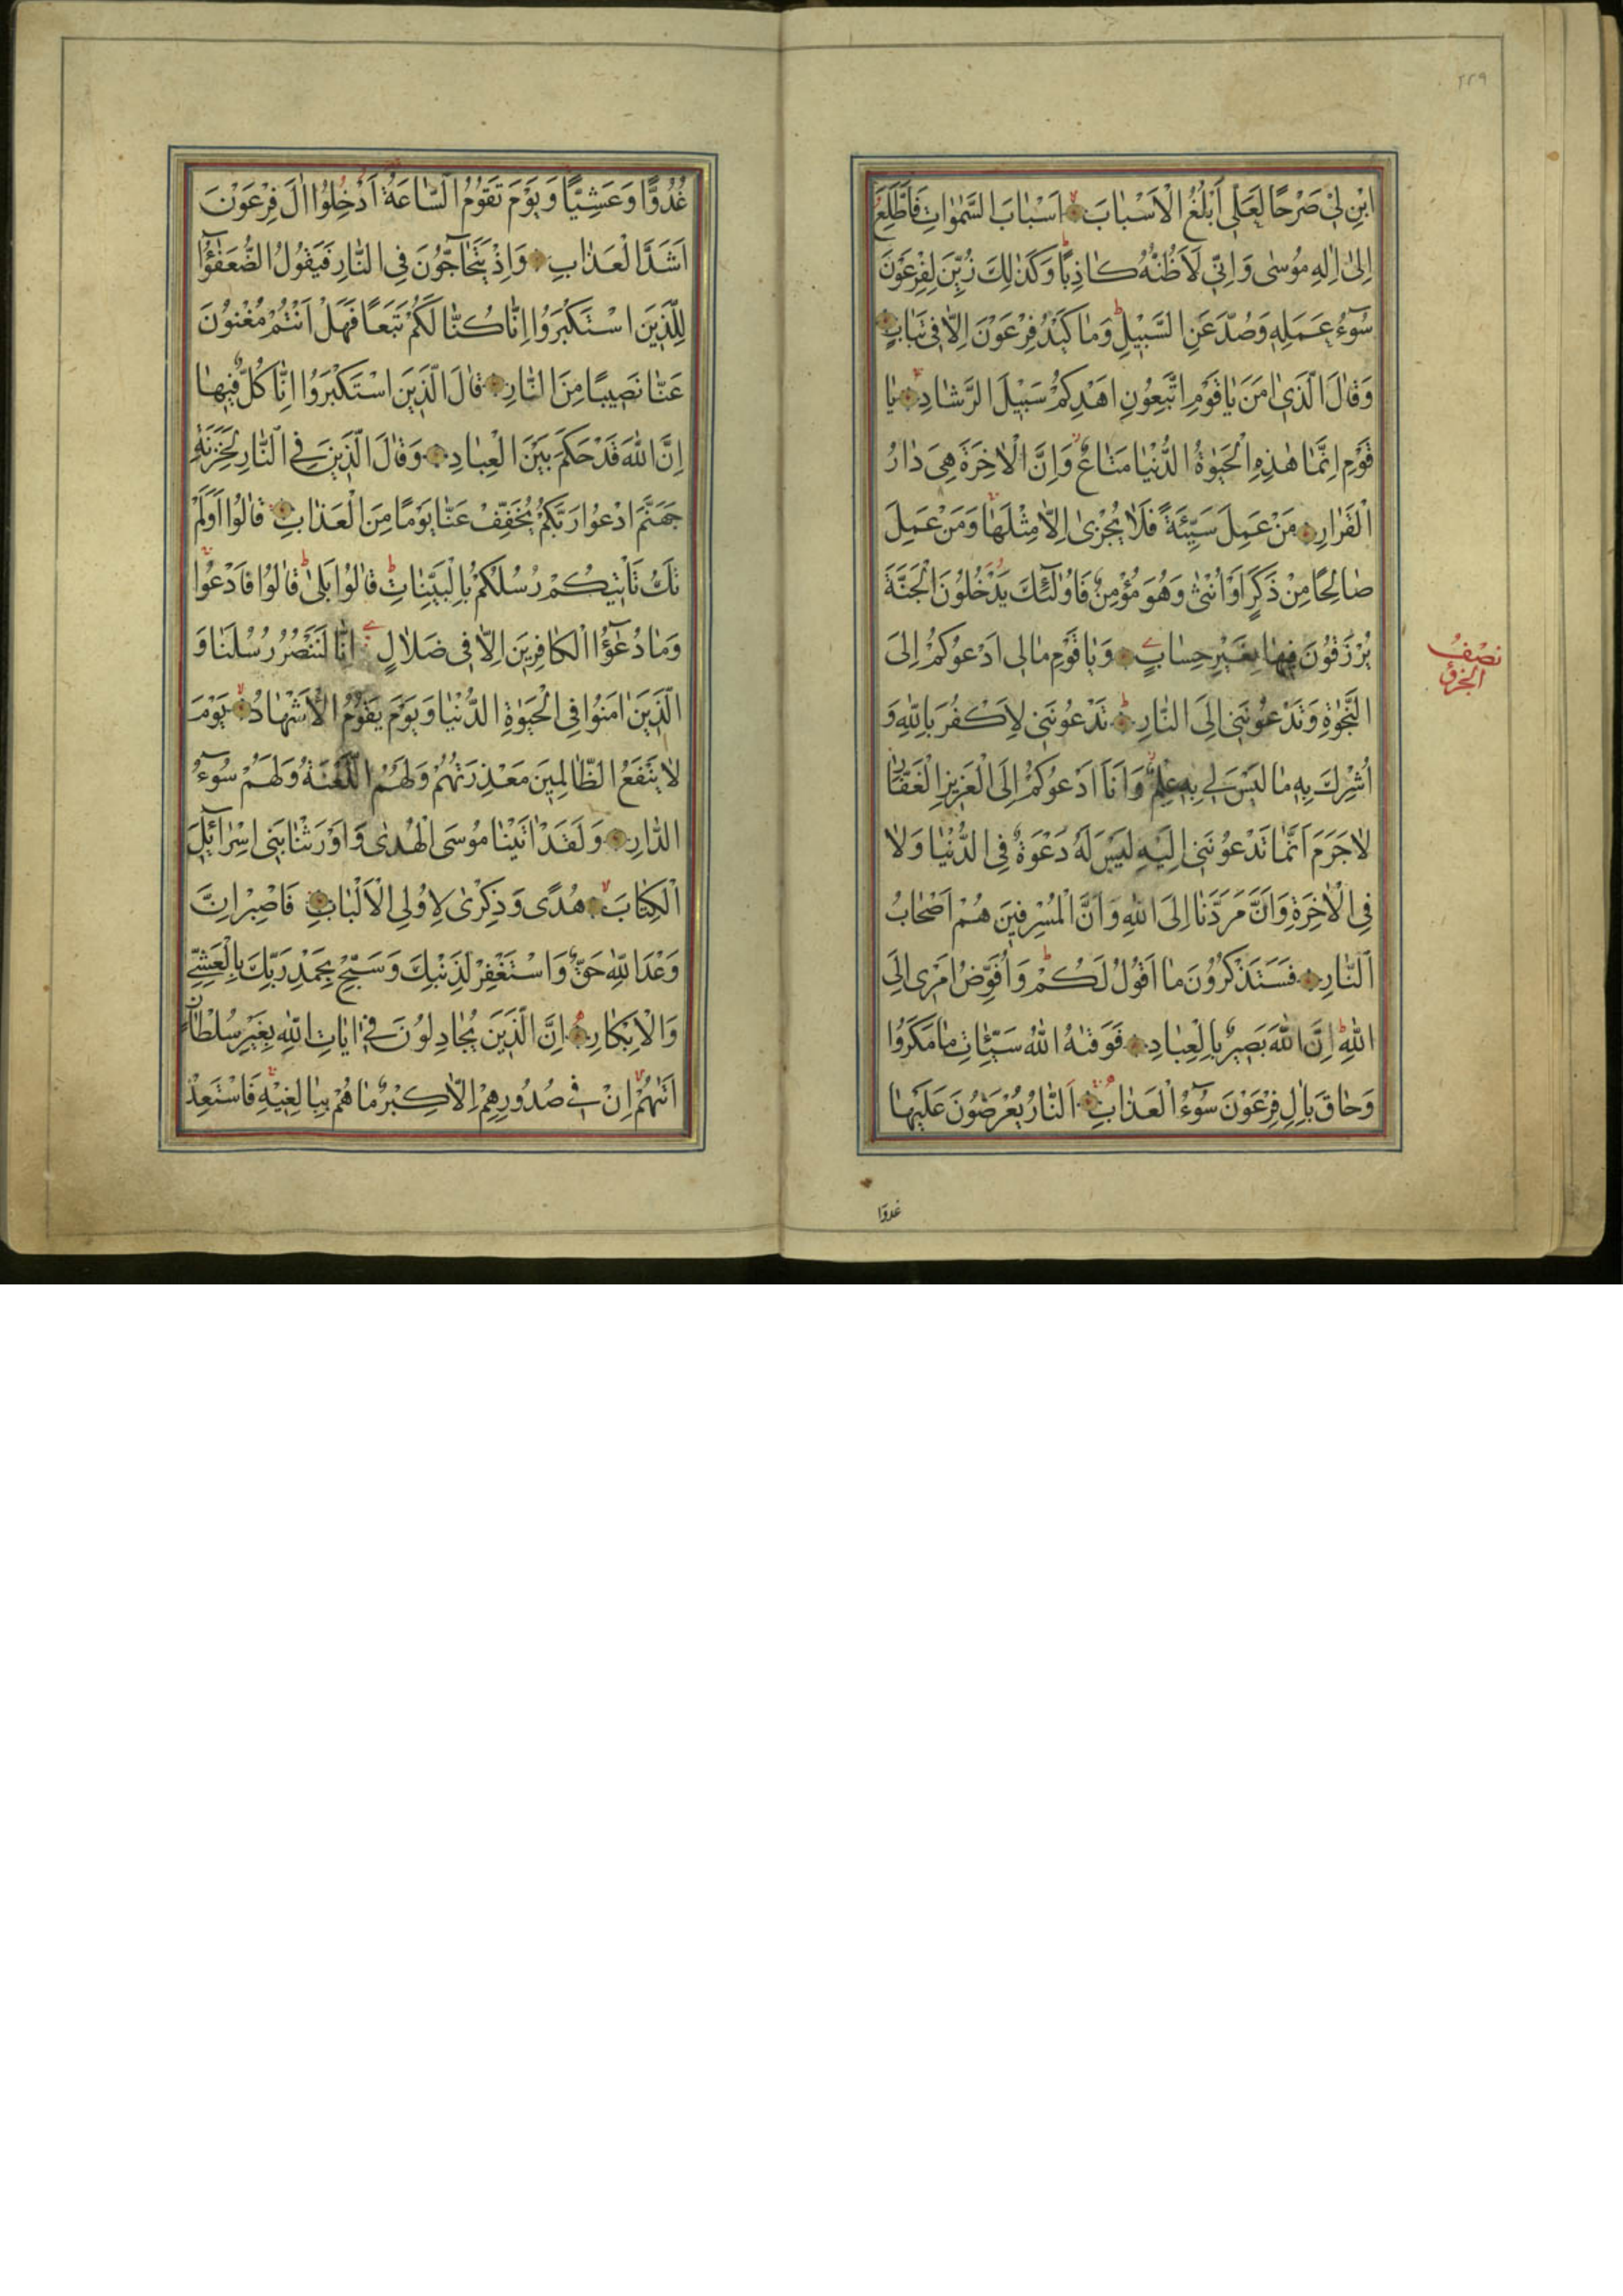 ٢٢٩
ابْنِ لِي صَرْحًا لَعَلِّي أَبْلُغُ الْأَسْبَابَ اَسْبَابَ السَّمٰوَاتِ فَاَطَّلِعَ
اِلٰى اِلٰهِ مُوسٰى وَاِنِّي لَاَظُنُّهُ كَاذِبًا وَكَذٰلِكَ زُيِّنَ لِفِرْعَوْنَ
سُوٓءُ عَمَلِهِ وَصُدَّ عَنِ السَّبِيلِ وَمَا كَيْدُ فِرْعَوْنَ اِلَّا فِي تَبَابٍ
وَقَالَ الَّذِي اٰمَنَ يَا قَوْمِ اتَّبِعُونِ اَهْدِكُمْ سَبِيلَ الرَّشَادِ يَا
قَوْمِ اِنَّمَا هٰذِهِ الْحَيٰوةُ الدُّنْيَا مَتَاعٌ وَاِنَّ الْاٰخِرَةَ هِيَ دَارُ
الْقَرَارِ مَنْ عَمِلَ سَيِّئَةً فَلَا يُجْزٰى اِلَّا مِثْلَهَا وَمَنْ عَمِلَ
صَالِحًا مِنْ ذَكَرٍ اَوْ اُنْثٰى وَهُوَ مُؤْمِنٌ فَاُولٰٓئِكَ يَدْخُلُونَ الْجَنَّةَ
يُرْزَقُونَ فِيهَا بِغَيْرِ حِسَابٍ وَيَا قَوْمِ مَا لِي اَدْعُوكُمْ اِلَى
النَّجٰوةِ وَتَدْعُونَنِي اِلَى النَّارِ تَدْعُونَنِي لِاَكْفُرَ بِاللّٰهِ وَ
اُشْرِكَ بِهِ مَا لَيْسَ لِي بِهِ عِلْمٌ وَاَنَا اَدْعُوكُمْ اِلَى الْعَزِيزِ الْغَفَّارِ
لَا جَرَمَ اَنَّمَا تَدْعُونَنِي اِلَيْهِ لَيْسَ لَهُ دَعْوَةٌ فِي الدُّنْيَا وَلَا
فِي الْاٰخِرَةِ وَاَنَّ مَرَدَّنَا اِلَى اللّٰهِ وَاَنَّ الْمُسْرِفِينَ هُمْ اَصْحَابُ
النَّارِ فَسَتَذْكُرُونَ مَا اَقُولُ لَكُمْ وَاُفَوِّضُ اَمْرِي اِلَى
اللّٰهِ اِنَّ اللّٰهَ بَصِيرٌ بِالْعِبَادِ فَوَقٰيهُ اللّٰهُ سَيِّئَاتِ مَا مَكَرُوا
وَحَاقَ بِاٰلِ فِرْعَوْنَ سُوٓءُ الْعَذَابِ اَلنَّارُ يُعْرَضُونَ عَلَيْهَا
غدوّا
نصْفُ
الجزؤ
غُدُوًّا وَعَشِيًّا وَيَوْمَ تَقُومُ السَّاعَةُ اَدْخِلُوا اٰلَ فِرْعَوْنَ
اَشَدَّ الْعَذَابِ وَاِذْ يَتَحَاجُّونَ فِي النَّارِ فَيَقُولُ الضُّعَفٰٓؤُا
لِلَّذِينَ اسْتَكْبَرُوا اِنَّا كُنَّا لَكُمْ تَبَعًا فَهَلْ اَنْتُمْ مُغْنُونَ
عَنَّا نَصِيبًا مِنَ النَّارِ قَالَ الَّذِينَ اسْتَكْبَرُوا اِنَّا كُلٌّ فِيهَا
اِنَّ اللّٰهَ قَدْ حَكَمَ بَيْنَ الْعِبَادِ وَقَالَ الَّذِينَ فِي النَّارِ لِخَزَنَةِ
جَهَنَّمَ ادْعُوا رَبَّكُمْ يُخَفِّفْ عَنَّا يَوْمًا مِنَ الْعَذَابِ قَالُوا اَوَلَمْ
تَكُ تَأْتِيكُمْ رُسُلُكُمْ بِالْبَيِّنَاتِ قَالُوا بَلٰى قَالُوا فَادْعُوا
وَمَا دُعٰٓؤُا الْكَافِرِينَ اِلَّا فِي ضَلَالٍ اِنَّا لَنَنْصُرُ رُسُلَنَا وَ
الَّذِينَ اٰمَنُوا فِي الْحَيٰوةِ الدُّنْيَا وَيَوْمَ يَقُومُ الْاَشْهَادُ يَوْمَ
لَا يَنْفَعُ الظَّالِمِينَ مَعْذِرَتُهُمْ وَلَهُمُ اللَّعْنَةُ وَلَهُمْ سُوٓءُ
الدَّارِ وَلَقَدْ اٰتَيْنَا مُوسَى الْهُدٰى وَاَوْرَثْنَا بَنِي اِسْرَآئِلَ
الْكِتَابَ هُدًى وَذِكْرٰى لِاُولِي الْاَلْبَابِ فَاصْبِرْ اِنَّ
وَعْدَ اللّٰهِ حَقٌّ وَاسْتَغْفِرْ لِذَنْبِكَ وَسَبِّحْ بِحَمْدِ رَبِّكَ بِالْعَشِيِّ
وَالْاِبْكَارِ اِنَّ الَّذِينَ يُجَادِلُونَ فِي اٰيَاتِ اللّٰهِ بِغَيْرِ سُلْطَانٍ
اَتٰيهُمْ اِنْ فِي صُدُورِهِمْ اِلَّا كِبْرٌ مَا هُمْ بِبَالِغِيهِ فَاسْتَعِذْ